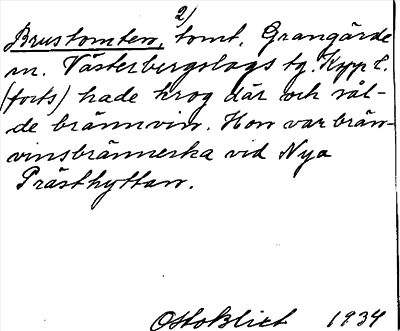 2)
Brustomten, tomt, Grangärde
m. Västerbergslags tg. Kpp l.
(forts) hade krog där och sål-
de brännvin. Hon var brän-
vinsbrännerska vid Nya
Prästhyttan.
Otto Blixt 1934